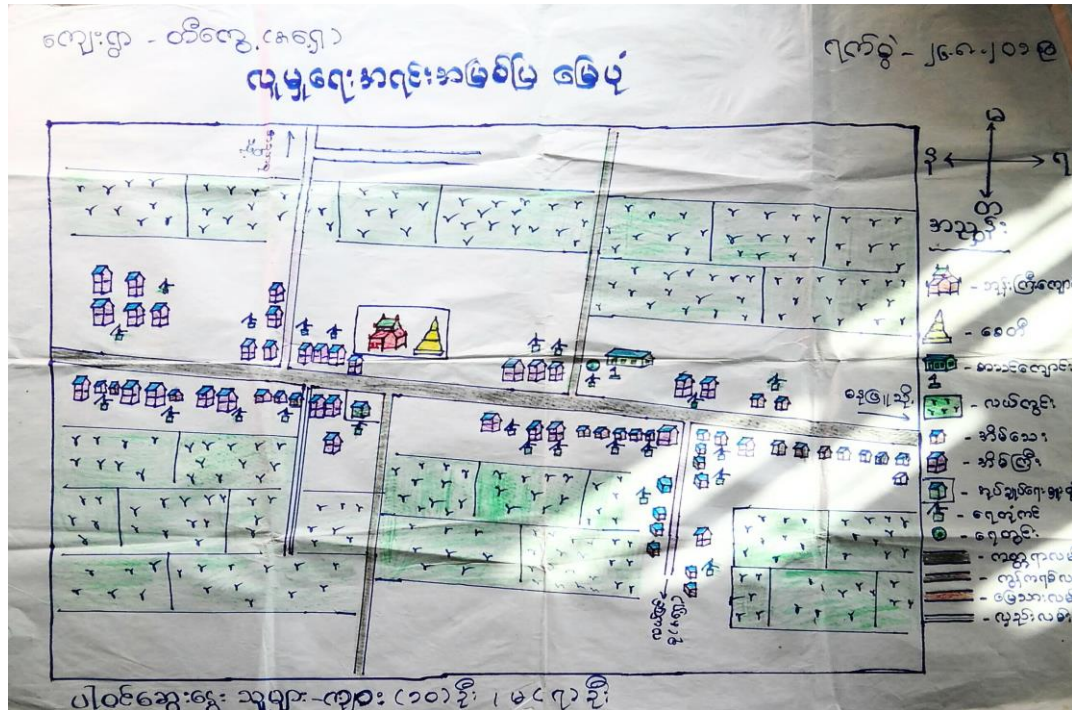 ကျေးရွာ - တီကွေ့ (အရှေ့)
ရက်စွဲ - ၂၄.၈.၂၀၁၉
လူမှုရေးအရင်းအမြစ်ပြ မြေပုံ
မ
န
ရ
တ
အညွှန်း
- ဘုန်းကြီးကျောင်း
- စေတီ
- စာသင်ကျောင်း
- လယ်ကွင်း
- အိမ်သေး
- အိမ်ကြီး
- ရေတွင်း
- ကတ္တရာလမ်း
- ကွန်ကရစ်လမ်း
- မြေသားလမ်း
- လှည်းလမ်း
ပါဝင်ဆွေးနွေး သူများ - ကျား (၁၀) ဦး ၊ မ (၇) ဦး